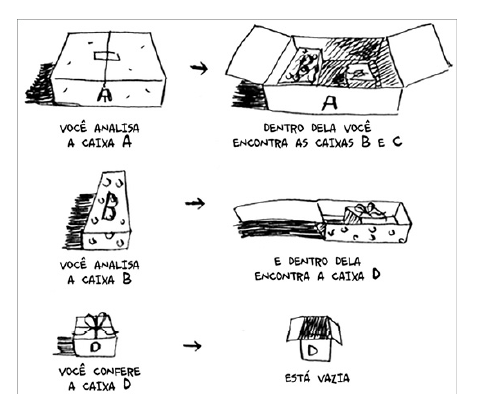 A
VOCÊ ANALISA
A CAIXA A
A
DENTRO DELA VOCÊ
ENCONTRA AS CAIXAS B E C
B
VOCÊ ANALISA
A CAIXA B
E DENTRO DELA
ENCONTRA A CAIXA D
D
VOCÊ CONFERE
A CAIXA D
D
ESTÁ VAZIA